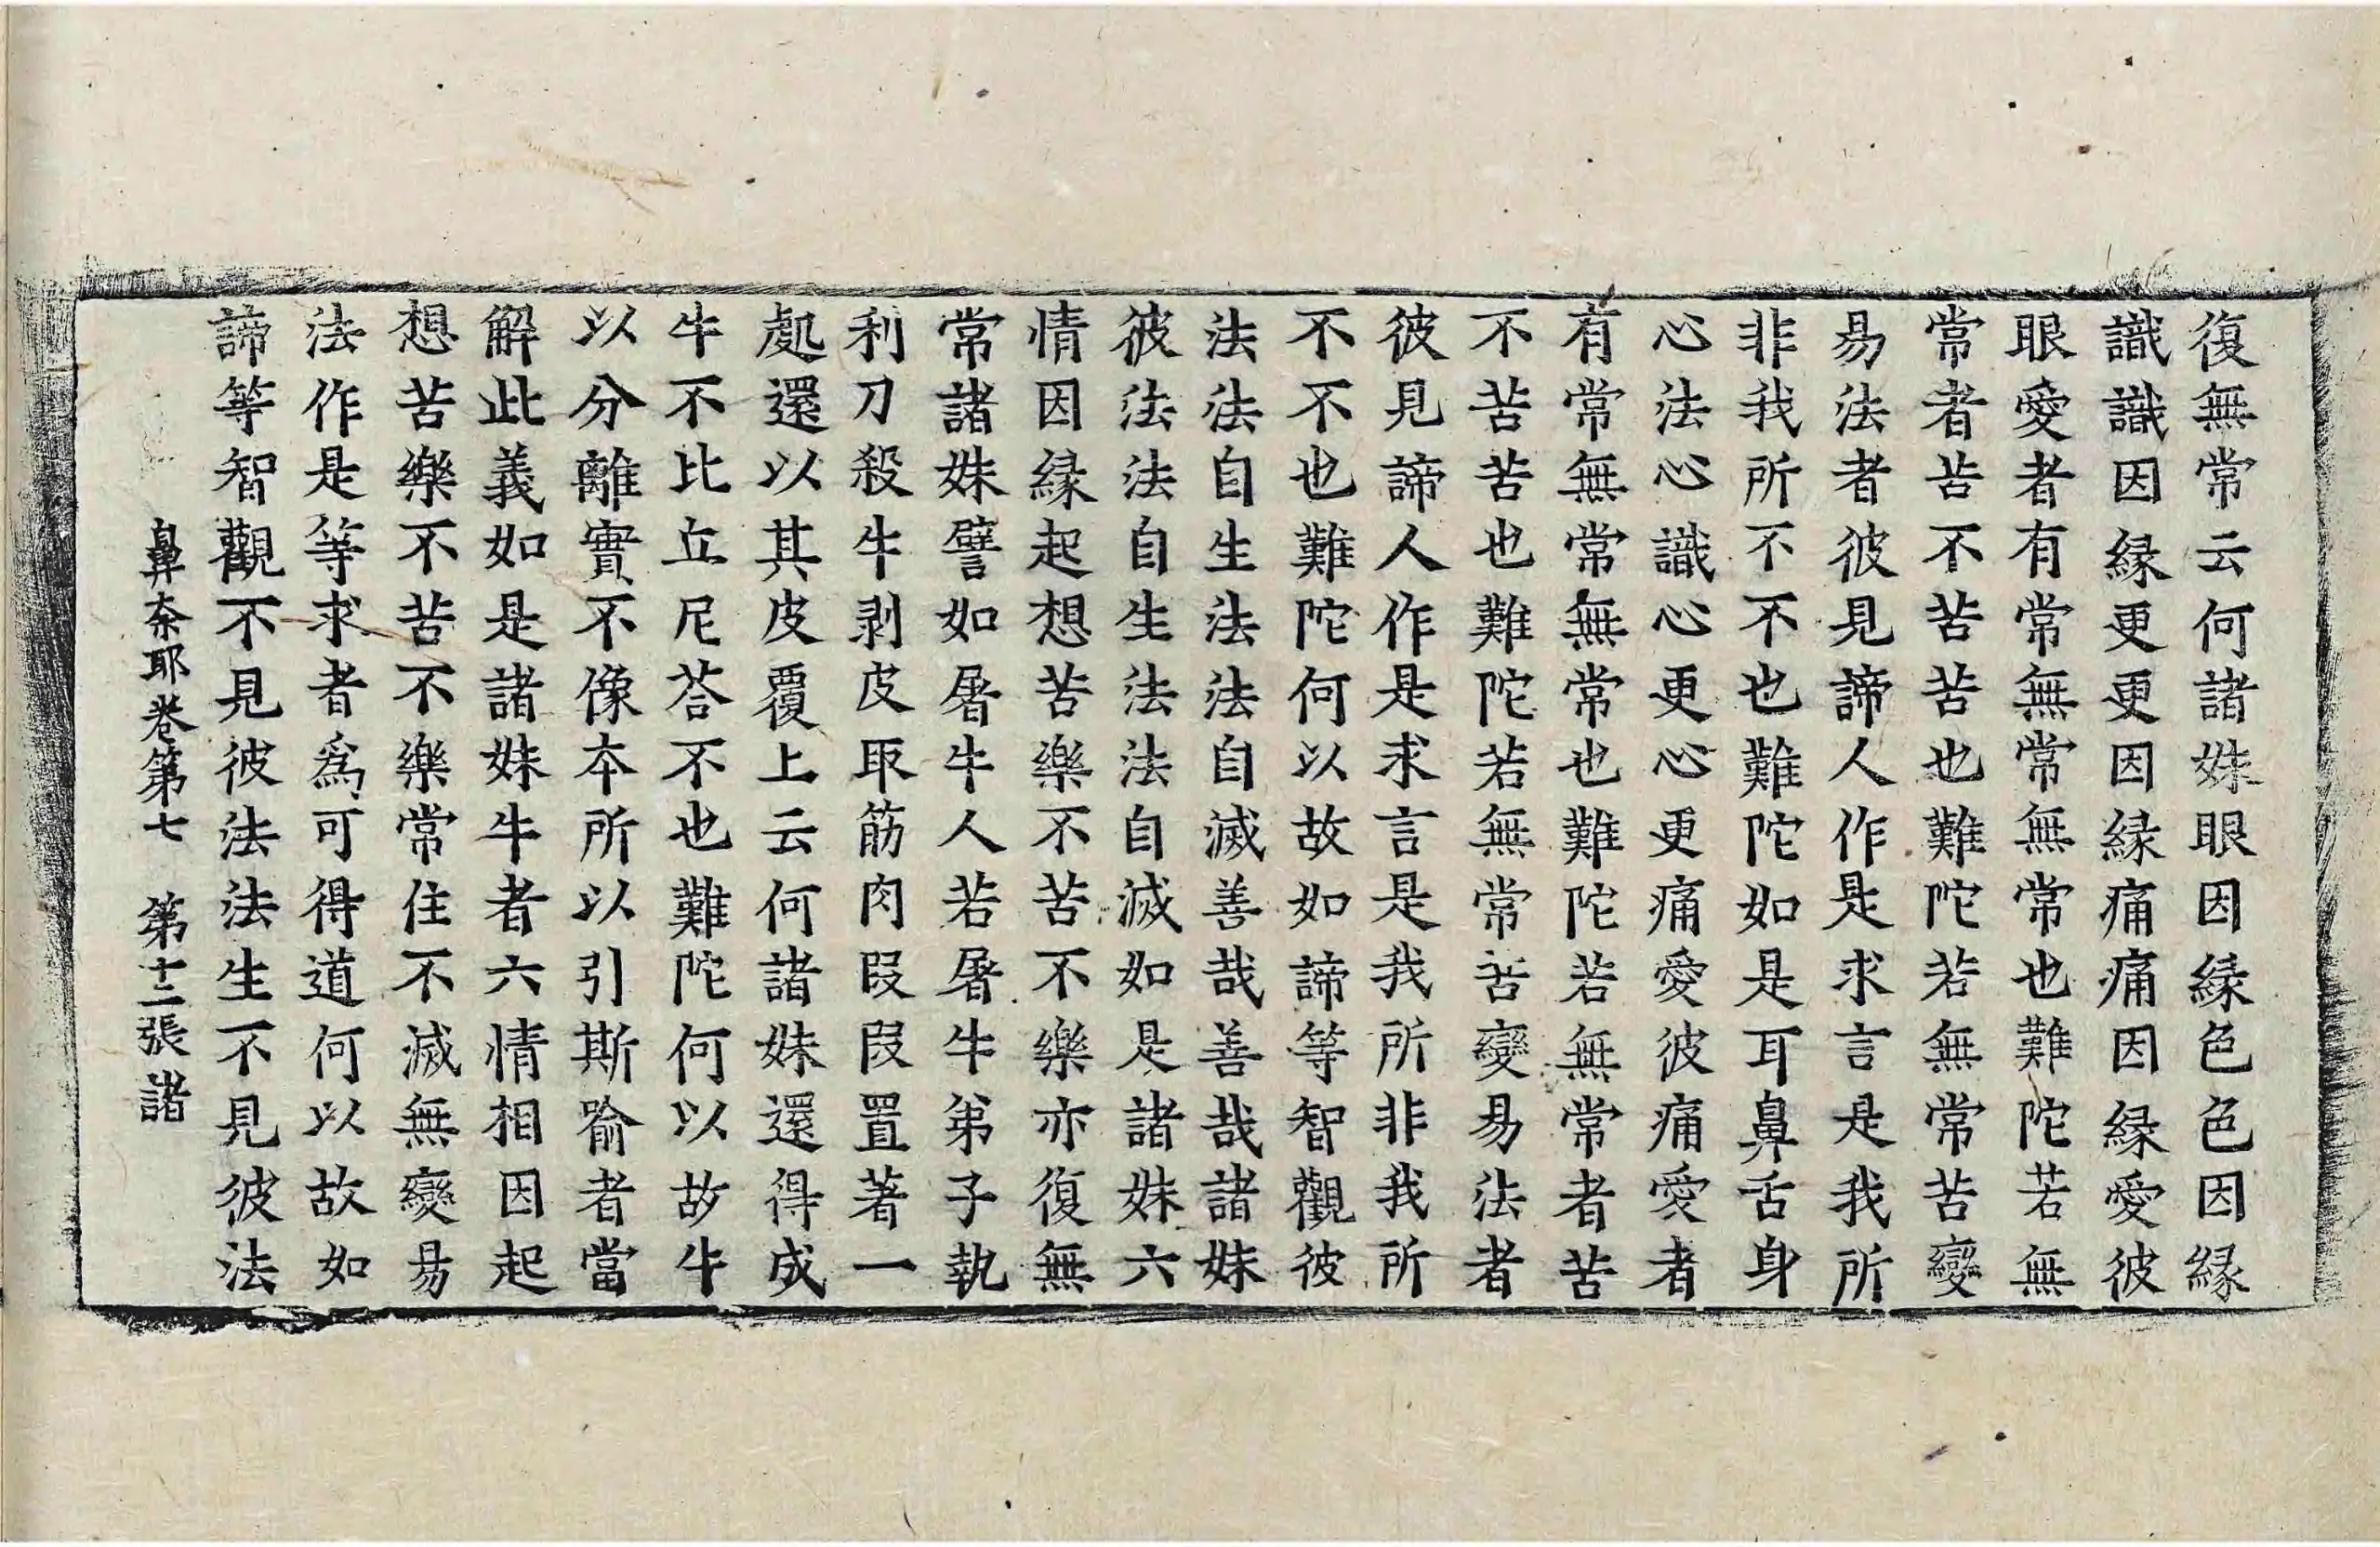 復無常云何諸妹眼因縁色色因縁
識識因縁更更因縁痛痛因縁愛彼
眼愛者有常無常無常也難陀若無
常者苦不苦苦也難陀若無常苦變
易法者彼見諦人作是求言是我所
非我所不不也難陀如是耳鼻舌身
心法心識心更心更痛愛彼痛愛者
有常無常無常也難陀若無常者苦
不苦苦也難陀若無常苦變易法者
彼見諦人作是求言是我所非我所
不不也難陀何以故如諦等智觀彼
法法自生法法自滅善哉善哉諸妹
彼法法自生法法自滅如是諸妹六
情因縁起想苦樂不苦不樂亦復無
常諸妹譬如屠牛人若屠牛弟子執
利刀殺牛剥皮取筋肉段段置著一
處還以其皮覆上云何諸妹還得成
牛不比丘尼荅不也難陀何以故牛
以分離實不像本所以引斯喻者當
解此義如是諸妹牛者六情相因起
想苦樂不苦不樂常住不滅無變易
法作是等求者爲可得道何以故如
諦等智觀不見彼法法生不見彼法
鼻奈耶卷第七　第十二張　諸